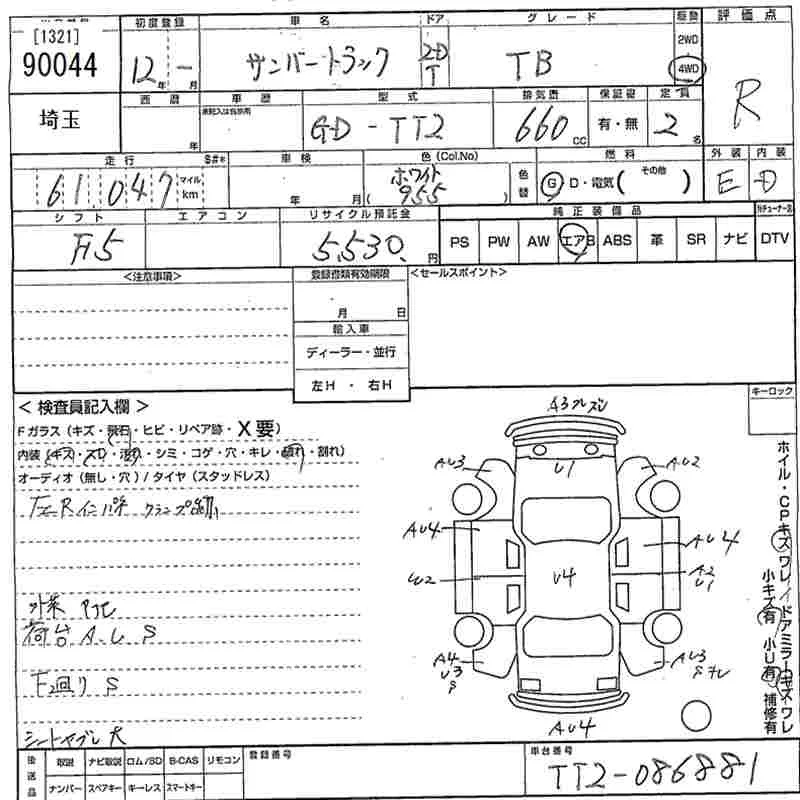 [1321]
90044
初度登録
12年 ー月
車名
サンバートラック
ドア
2-D
T
グレード
TB
駆動
2WD
4WD
評価点
R
埼玉
西暦
年
車歴
型式
GD - TT2
排気量
660cc
保証書
有・無
定員
2名
走行
61,047
マイル
km
車検
年 月
色 (Col.No)
ホワイト
( 955 )
色替
燃料
G D・電気( その他 )
外装
E
内装
D
シフト
F5
エアコン
リサイクル預託金
5,530.円
純正装備品
PS PW AW エアB ABS 革 SR ナビ
DTV
<注意事項>
登録書類有効期限
月 日
輸入車
ディーラー・並行
左H ・ 右H
<セールスポイント>
< 検査員記入欄 >
Fガラス(キズ・飛石・ヒビ・リペア跡・X要)
内装(キズ・スレ・汚れ・シミ・コゲ・穴・キレ・破れ・割れ)
オーディオ(無し・穴)/タイヤ(スタッドレス)
荷台 A-U S
F2回り S
シートヤブレ大
キーロック
A3
U1
AU3
AU2
AU4
AU4
U2
U4
A2
U1
A4
U3
S
AU3
AU4
ホイル・CPキズワレ/ドアミラーキズワレ
小キズ有 小U有 補修有
後送品
取説 ナビ取説 ロム/SD B-CAS リモコン
ナンバー スペアキー キーレス スマートキー
登録番号
車台番号
TT2-086881